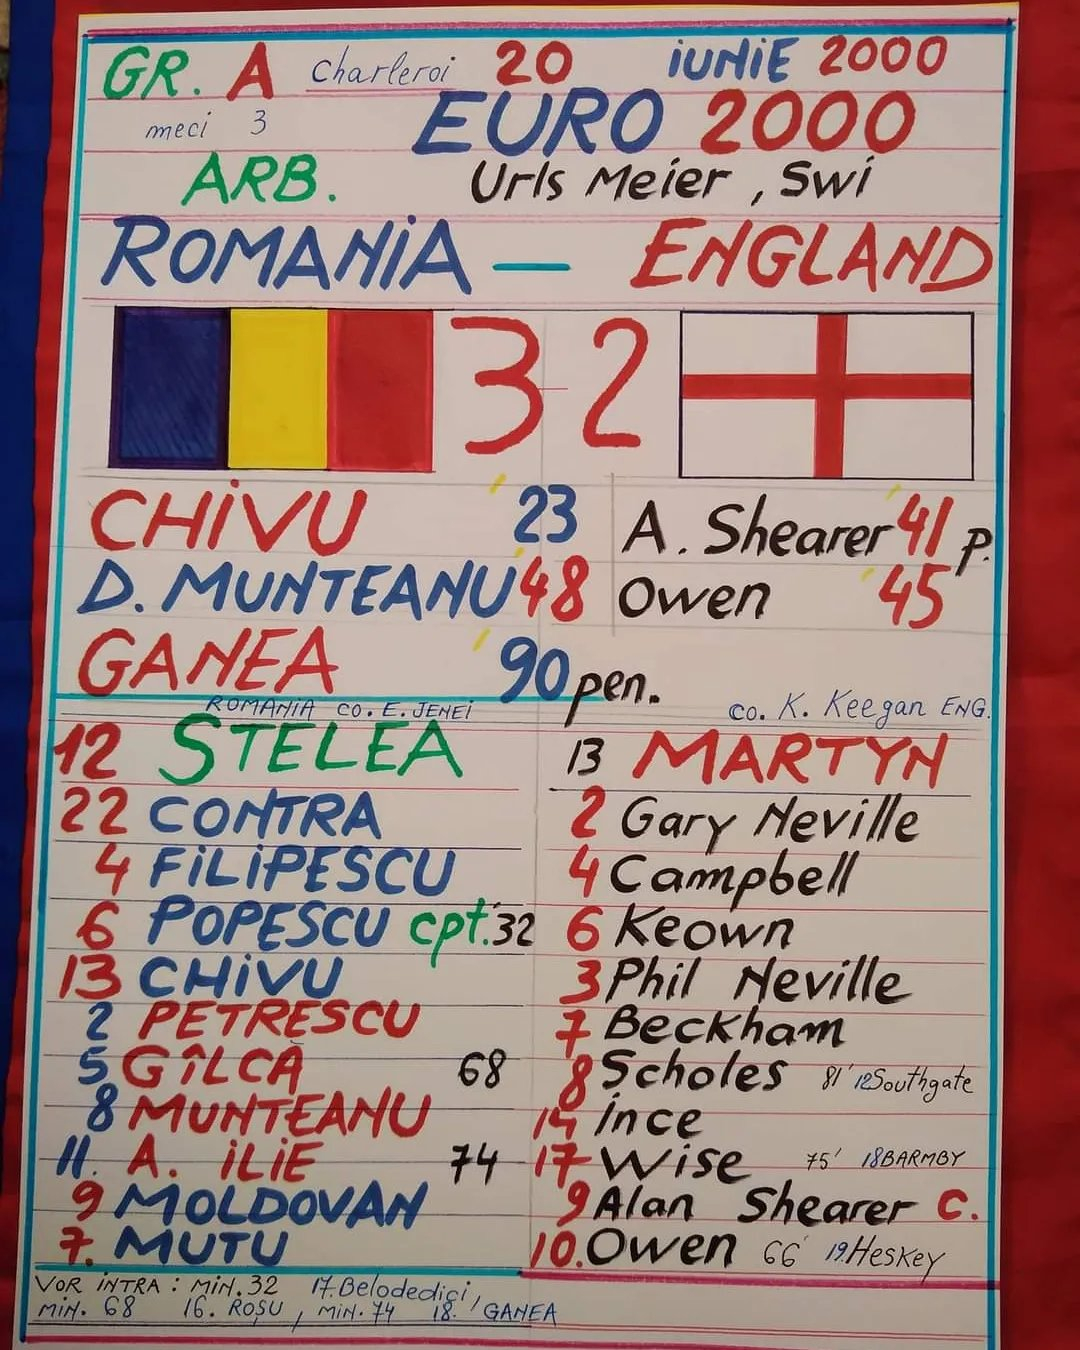 GR. A Charleroi 20 iUNiE 2000
meci 3 EURO 2000
ARB. Urls Meier , Swi
ROMANiA — ENGLAND
3 - 2
CHiVU '23 A. Shearer '41 p.
D. MUNTEANU '48 Owen '45
GANEA '90 pen.
ROMANIA co. E. JENEI co. K. Keegan ENG.
12 STELEA 13 MARTYN
22 CONTRA 2 Gary Neville
4 FiLiPESCU 4 Campbell
6 POPESCU cpt. '32 6 Keown
13 CHiVU 3 Phil Neville
2 PETRESCU 7 Beckham
5 GÎLCĂ 68 8 Scholes 81' 12 Southgate
8 MUNTEANU 14 ince
11. A. iLiE 74 17 Wise 75' 18 BARMBY
9 MOLDOVAN 9 Alan Shearer C.
7. MUTU 10. Owen 66' 19. Heskey
VOR iNTRA : MiN. 32 17. Belodedici,
MiN. 68 16. ROȘU , MiN. 74 18. GANEA